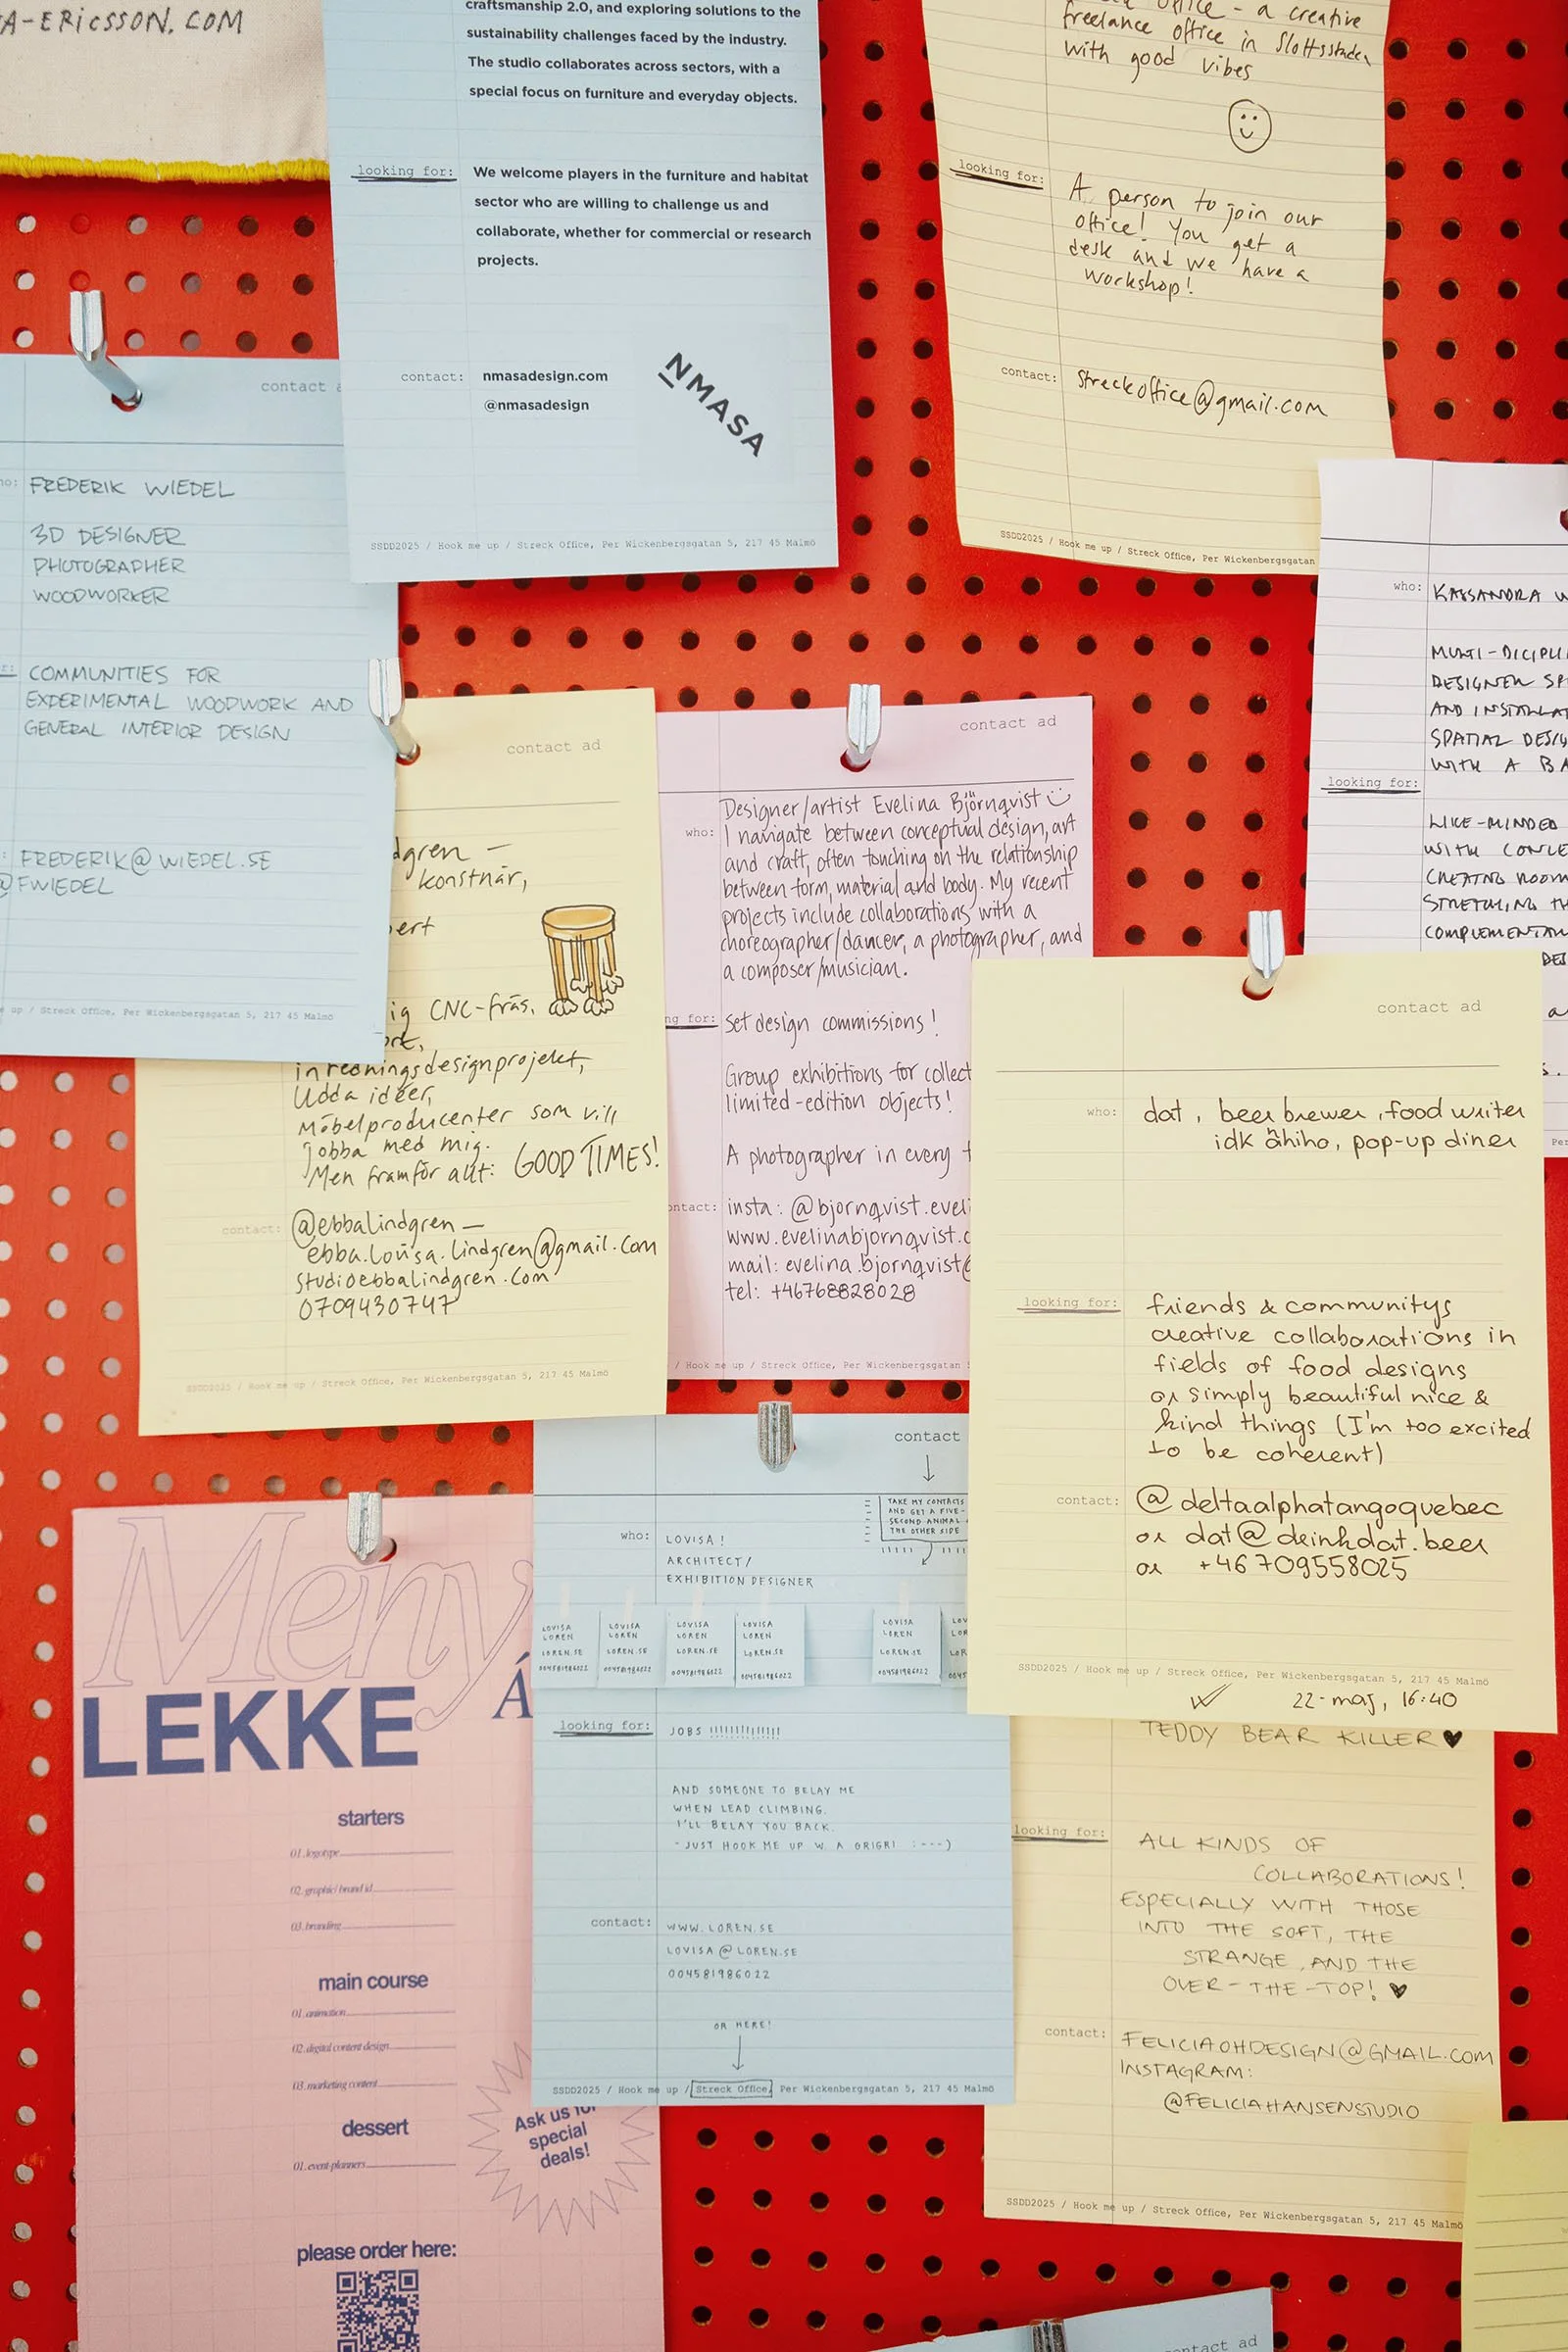 A-ERICSSON.COM
craftsmanship 2.0, and exploring solutions to the
sustainability challenges faced by the industry.
The studio collaborates across sectors, with a
special focus on furniture and everyday objects.
looking for:
We welcome players in the furniture and habitat
sector who are willing to challenge us and
collaborate, whether for commercial or research
projects.
contact:
nmasadesign.com
@nmasadesign
NMASA
SSDD2025 / Hook me up / Streck Office, Per Wickenbergsgatan 5, 217 45 Malmö
office - a creative
freelance office in Slottsstaden
with good vibes
looking for:
A person to join our
office! You get a
desk and we have a
workshop!
contact:
streckoffice@gmail.com
SSDD2025 / Hook me up / Streck Office, Per Wickenbergsgatan
contact a
FREDERIK WIEDEL
3D DESIGNER
PHOTOGRAPHER
WOODWORKER
COMMUNITIES FOR
EXPERIMENTAL WOODWORK AND
GENERAL INTERIOR DESIGN
FREDERIK@WIEDEL.SE
@FWIEDEL
e up / Streck Office, Per Wickenbergsgatan 5, 217 45 Malmö
who:
KASSANDRA
MULTI-DICIPLI
DESIGNER SP
AND INSTALLAT
SPATIAL DESIG
WITH A BA
looking for:
LIKE-MINDED
WITH CONCE
CREATING ROOM
STRETCHING TH
COMPLEMENTAL
contact ad
dgren –
konstnär,
ert
ig CNC-fräs,
ort,
inredningsdesignprojekt,
Udda idéer,
Möbelproducenter som vill
jobba med mig.
Men framför allt: GOOD TIMES!
contact:
@ebbalindgren –
ebba.lovisa.lindgren@gmail.com
studioebbalindgren.com
0709430747
SSDD2025 / Hook me up / Streck Office, Per Wickenbergsgatan 5, 217 45 Malmö
contact ad
who:
Designer/artist Evelina Björnqvist
I navigate between conceptual design, art
and craft, often touching on the relationship
between form, material and body. My recent
projects include collaborations with a
choreographer/dancer, a photographer, and
a composer/musician.
ng for:
Set design commissions!
Group exhibitions for collect
limited-edition objects!
A photographer in every t
ontact:
insta: @bjornqvist.eveli
www.evelinabjornqvist.c
mail: evelina.bjornqvist@
tel: +46768828028
/ Hook me up / Streck Office, Per Wickenbergsgatan
contact ad
who:
dat, beer brewer, food writer
idk öhiho, pop-up diner
looking for:
friends & communitys
creative collaborations in
fields of food designs
or simply beautiful nice &
kind things (I'm too excited
to be coherent)
contact:
@deltaalphatangoquebec
or dat@drinkdat.beer
or +46 709558025
SSDD2025 / Hook me up / Streck Office, Per Wickenbergsgatan 5, 217 45 Malmö
22 maj, 16:40
contact
TAKE MY CONTACTS
AND GET A FIVE-
SECOND ANIMAL
THE OTHER SIDE
who:
LOVISA!
ARCHITECT/
EXHIBITION DESIGNER
LOVISA
LOREN
LOREN.SE
004581986022
LOVISA
LOREN
LOREN.SE
004581986022
LOVISA
LOREN
LOREN.SE
004581986022
LOVISA
LOREN
LOREN.SE
004581986022
LOVISA
LOREN
LOREN.SE
004581986022
LOV
LOR
LOR
0045
looking for:
JOBS !!!!!!!!!!!!!!
AND SOMEONE TO BELAY ME
WHEN LEAD CLIMBING.
I'LL BELAY YOU BACK.
- JUST HOOK ME UP W. A GRIGRI :---)
contact:
WWW.LOREN.SE
LOVISA@LOREN.SE
004581986022
OR HERE!
SSDD2025 / Hook me up / Streck Office, Per Wickenbergsgatan 5, 217 45 Malmö
TEDDY BEAR KILLER ♥
looking for:
ALL KINDS OF
COLLABORATIONS!
ESPECIALLY WITH THOSE
INTO THE SOFT, THE
STRANGE, AND THE
OVER-THE-TOP! ♥
contact:
FELICIAOHDESIGN@GMAIL.COM
INSTAGRAM:
@FELICIAHANSENSTUDIO
SSDD2025 / Hook me up / Streck Office, Per Wickenbergsgatan 5, 217 45 Malmö
Meny
LEKKE
Á
starters
01. logotype
02. graphic/ brand id
03. branding
main course
01. animation
02. digital content design
03. marketing content
dessert
01. event-planners
Ask us for
special
deals!
please order here:
ontact ad